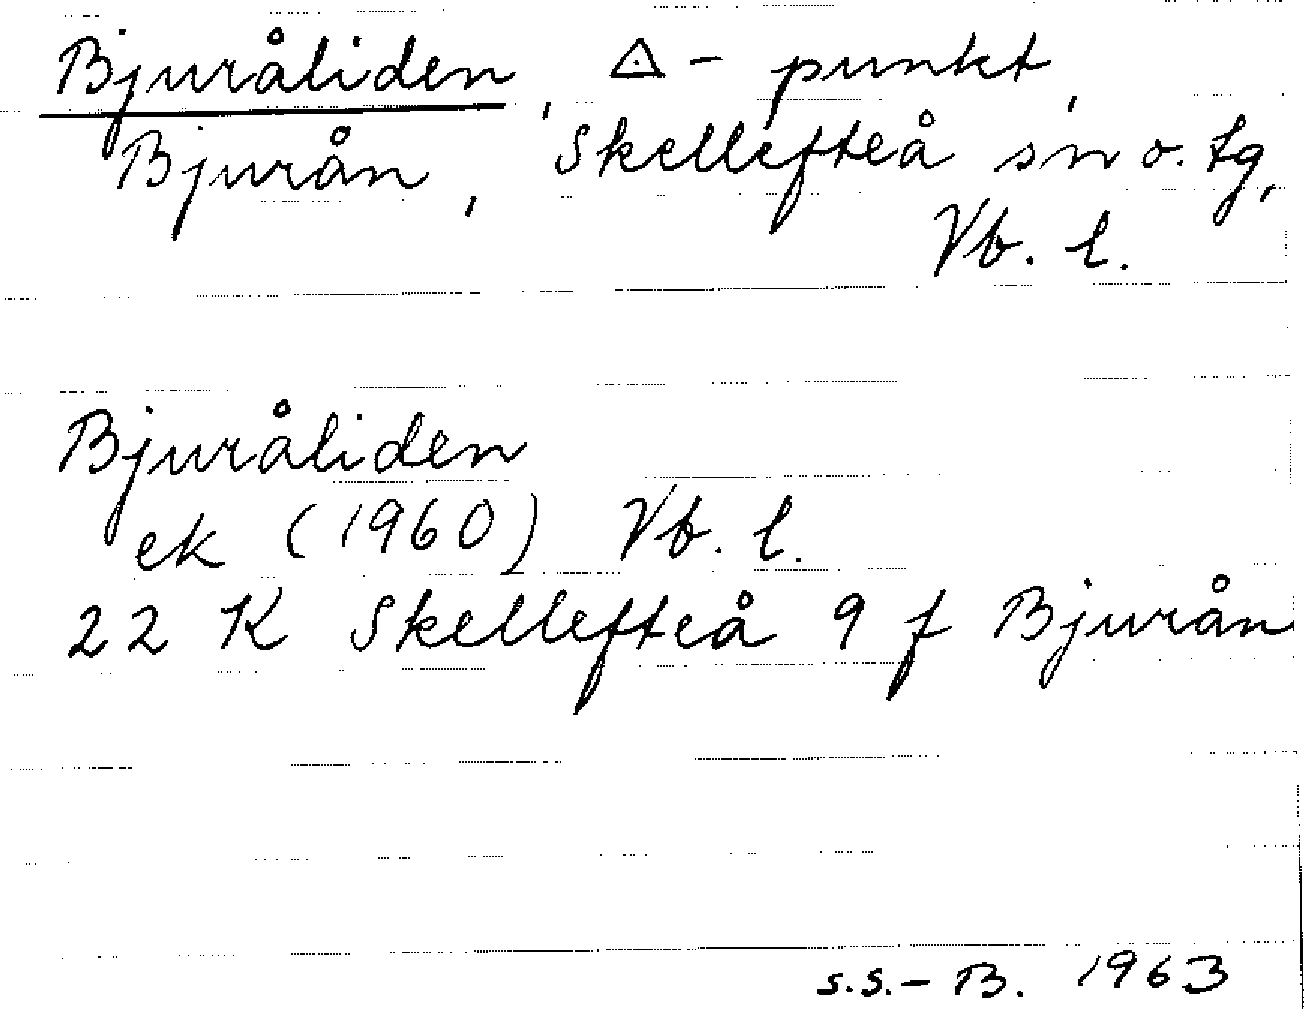 Bjuråliden, △ - punkt,
Bjurån, Skellefteå sn o. tg,
Vb. l.
Bjuråliden
ek (1960) Vb. l.
22 K Skellefteå 9 f Bjurån
s.s. - B. 1963